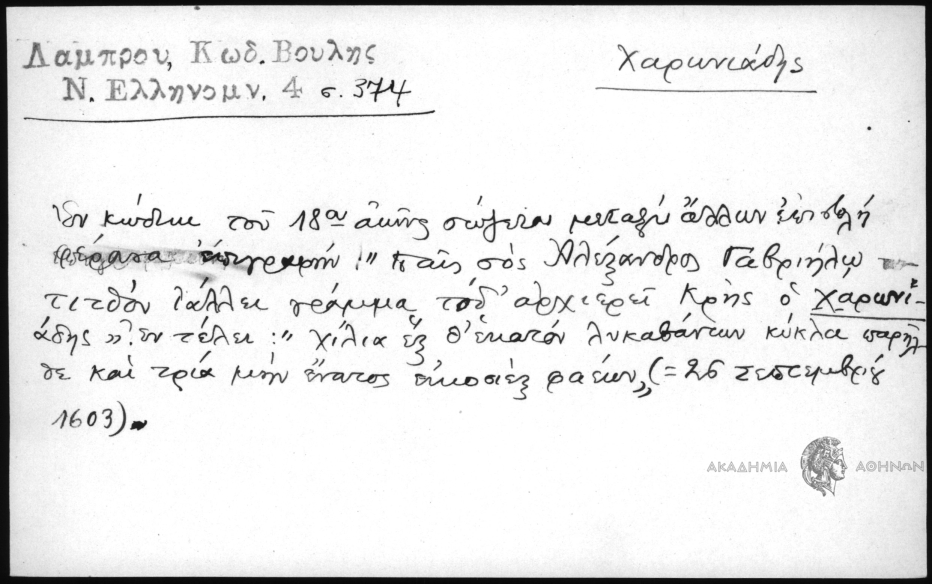 Λαμπρου, Κωδ. Βουλης
Ν. Ελληνομν. 4 σ. 374
Χαρωνιάδης
Ἐν κώδικι τοῦ 18ου αἰῶνος σώζεται μεταξὺ ἄλλων ἐπιστολὴ
φέρουσα ἐπιγραφήν: "Παῖς σὸς Ἀλέξανδρος Γαβριήλῳ
τυτθὸν ἰάλλει γράμμα τόδ' ἀρχιερεῖ Κρὴς ὁ Χαρωνι-
άδης". Ἐν τέλει: "Χίλια ἓξ θ' ἑκατὸν λυκαβάντων κύκλα παρῆλ
θε καὶ τρία μὴν ἔνατος εἰκοσιὲξ φαέων" (= 26 Σεπτεμβρίου
1603).
ΑΚΑΔΗΜΙΑ ΑΘΗΝΩΝ